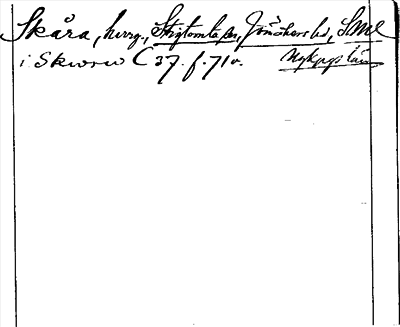 Skåra, herrg., Stigtomta sn, Jönåkers hd, Sml
i Skworw C 37. f. 71 v. Nykpgs län